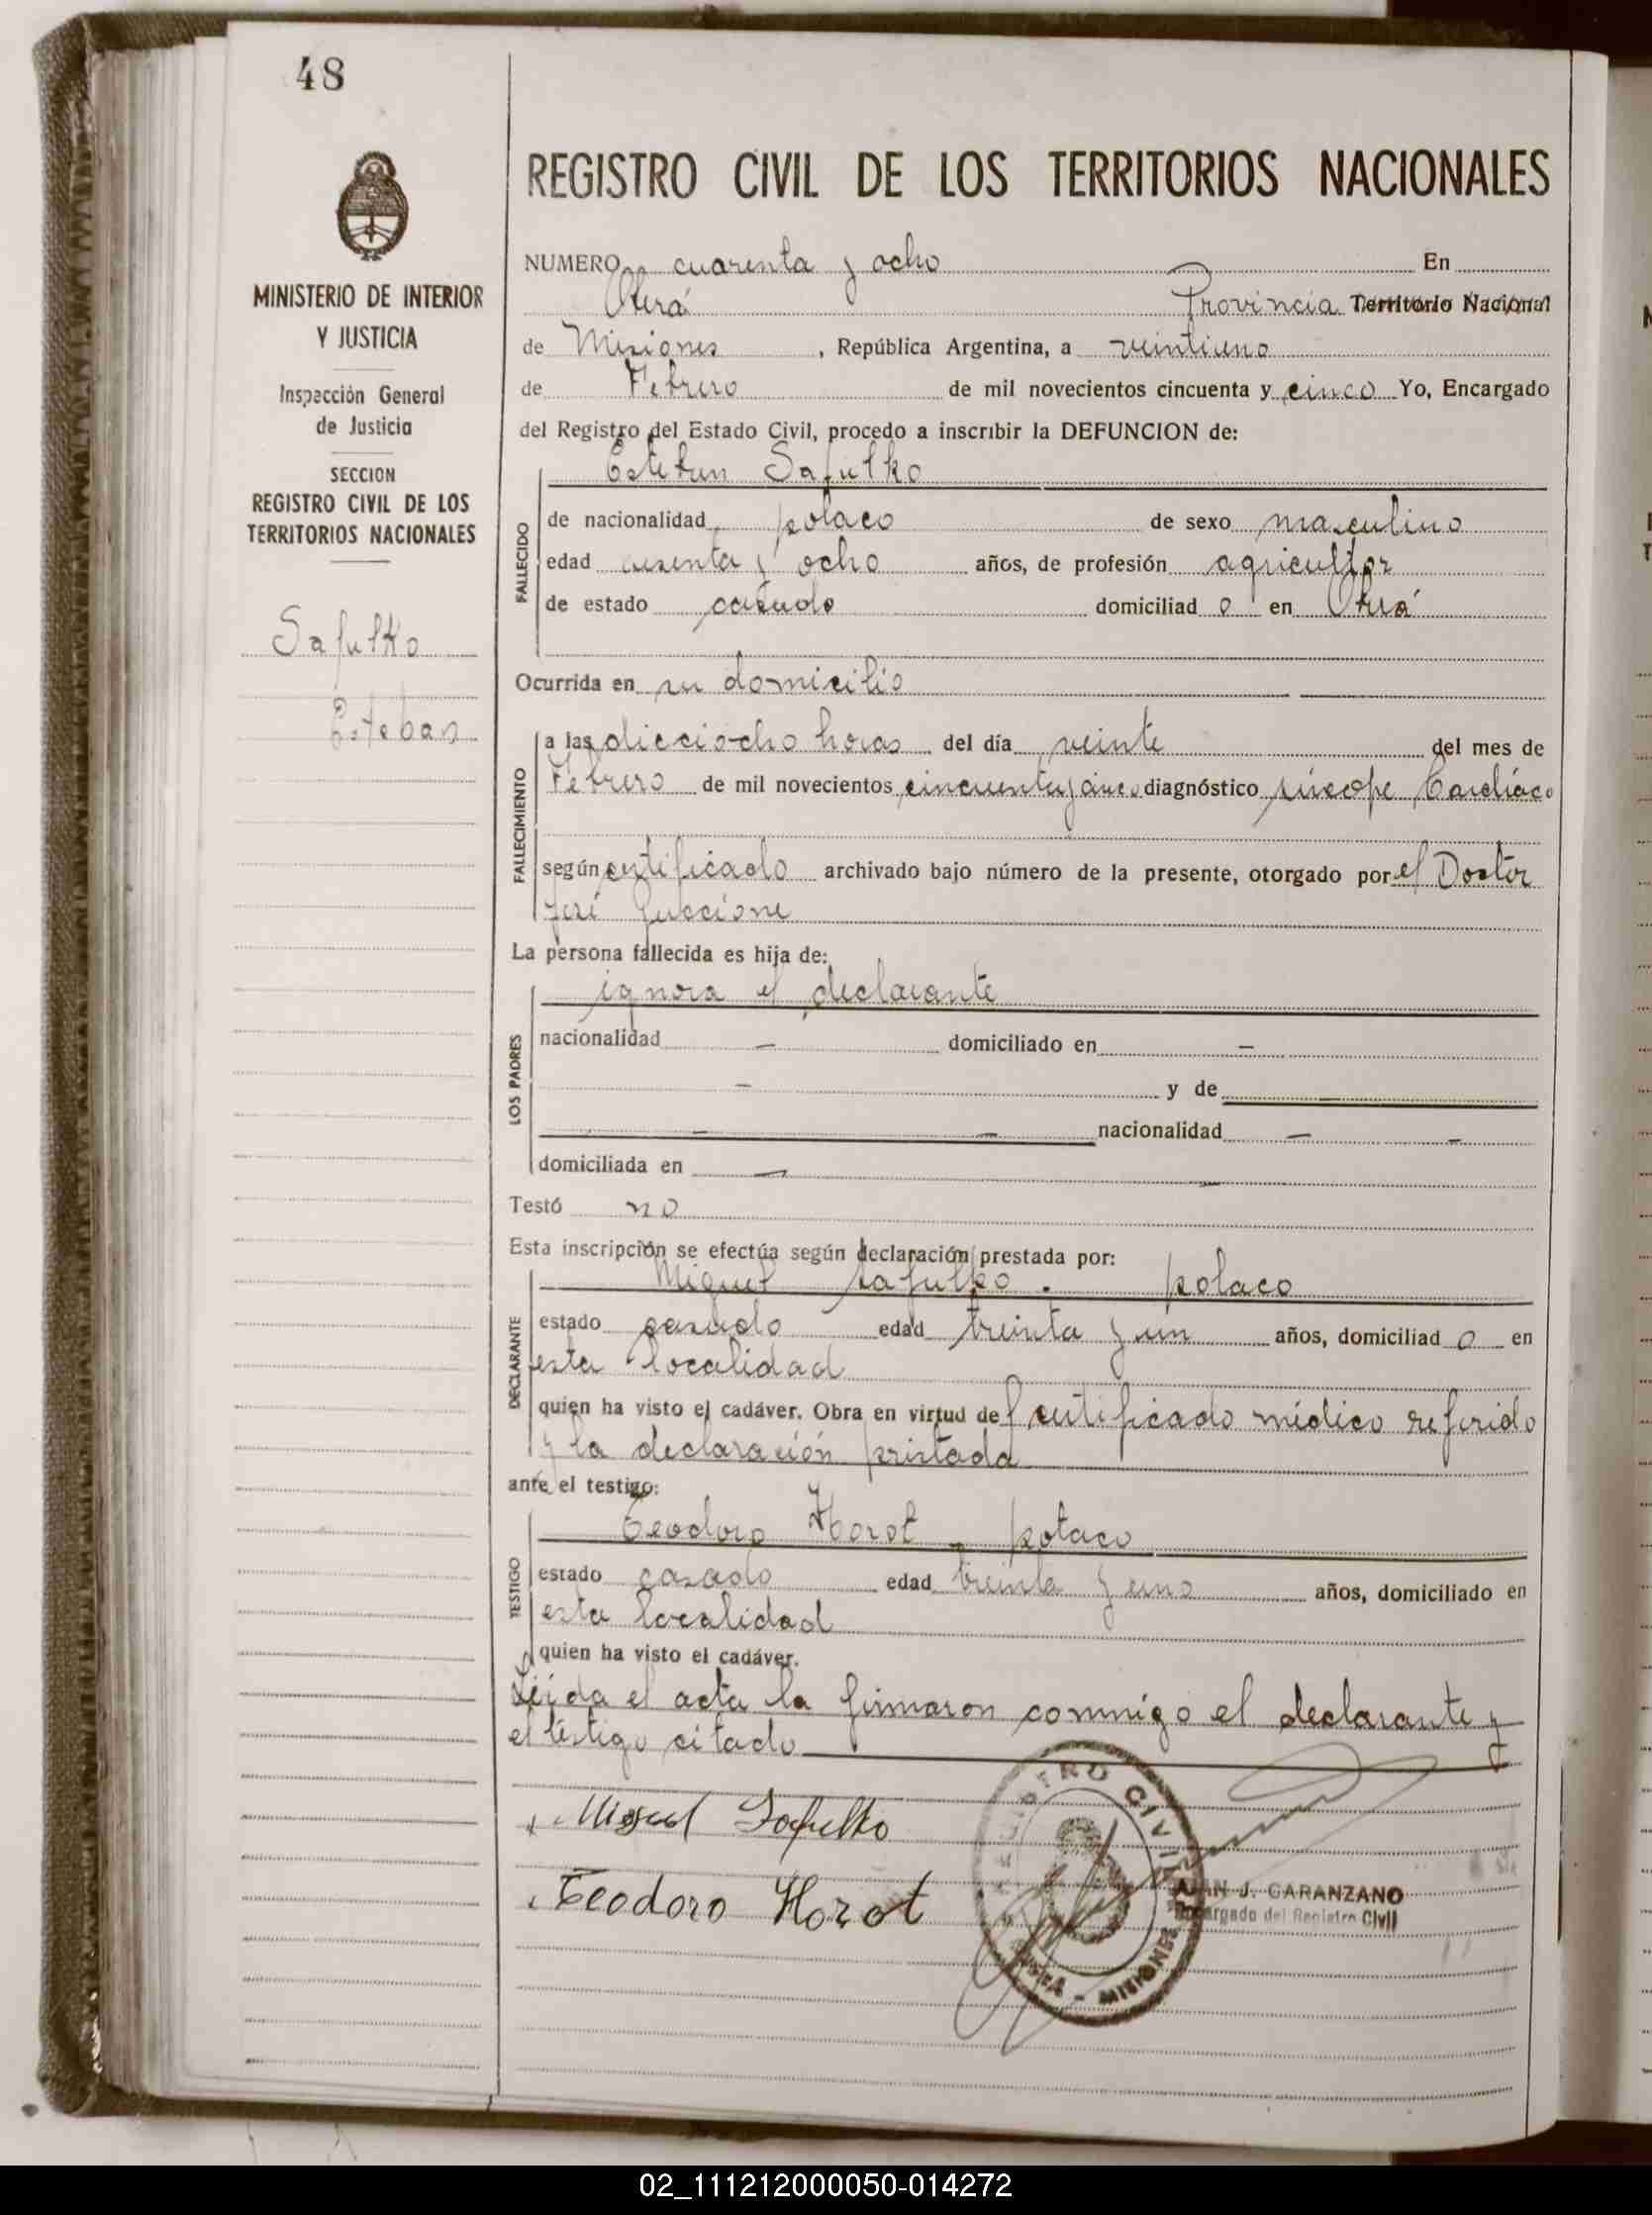 48
MINISTERIO DE INTERIOR
Y JUSTICIA
Inspección General
de Justicia
SECCION
REGISTRO CIVIL DE LOS
TERRITORIOS NACIONALES
Safulko
Esteban
REGISTRO CIVIL DE LOS TERRITORIOS NACIONALES
NUMERO cuarenta y ocho En
Oberá Provincia Territorio Nacional
de Misiones, República Argentina, a veintiuno
de Febrero de mil novecientos cincuenta y cinco Yo, Encargado
del Registro del Estado Civil, procedo a inscribir la DEFUNCION de:
Esteban Safulko
FALLECIDO
de nacionalidad polaco de sexo masculino
edad sesenta y ocho años, de profesión agricultor
de estado casado domiciliad o en Oberá
Ocurrida en su domicilio
FALLECIMIENTO
a las dieciocho horas del día veinte del mes de
Febrero de mil novecientos cincuenta y cinco diagnóstico síncope Cardíaco
según certificado archivado bajo número de la presente, otorgado por el Doctor
José Guccione
La persona fallecida es hija de:
LOS PADRES
ignora el declarante
nacionalidad — domiciliado en —
— y de
— — nacionalidad — —
domiciliada en — —
Testó no
Esta inscripción se efectúa según declaración prestada por:
DECLARANTE
Miguel Safulko. polaco
estado casado edad treinta y un años, domiciliad o en
esta localidad
quien ha visto el cadáver. Obra en virtud del certificado médico referido
y la declaración prestada
ante el testigo:
TESTIGO
Teodoro Horot - polaco
estado casado edad treinta y uno años, domiciliado en
esta localidad
quien ha visto el cadáver.
Leída el acta la firmaron conmigo el declarante y
el testigo citado
Miguel Safulko
Teodoro Horot
REGISTRO CIVIL
OBERA - MISIONES
JUAN J. CARANZANO
Encargado del Registro Civil
02_111212000050-014272